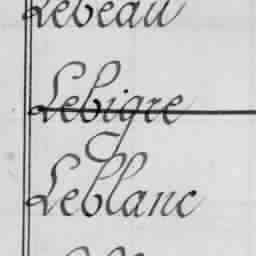 Lebeau
Lebigre
Leblanc